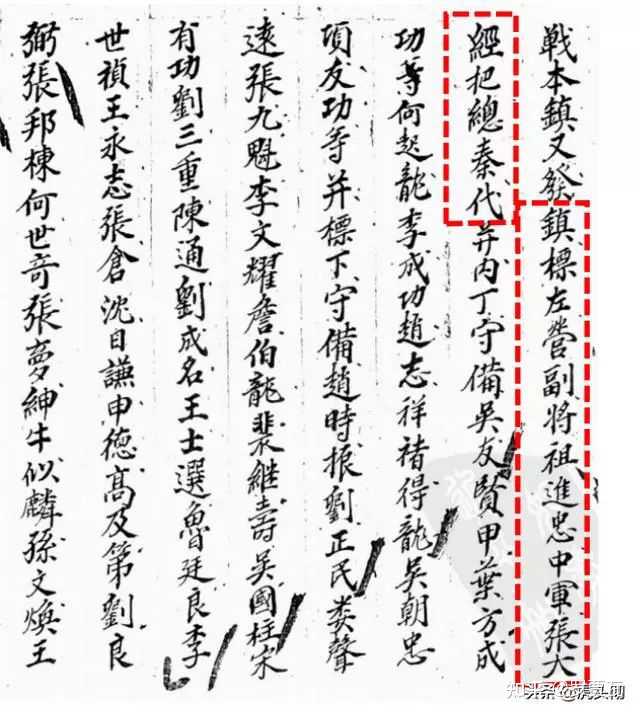 戦本鎮又發鎮標左營副將祖進忠中軍張大
經把總秦代并内丁守備吳友賢甲葉方成
功等何起龍李成功趙志祥禇得龍吳朝忠
項友功等并標下守備趙時振劉正民婁聲
遠張九魁李文耀詹伯龍裴継壽吳國柱宋
有功劉三重陳通劉成名王士選魯廷良李
世禎王永志張倉沈日謙申徳高及第劉良
弼張邦棟何世竒張夢紳牛似麟孫文煥王